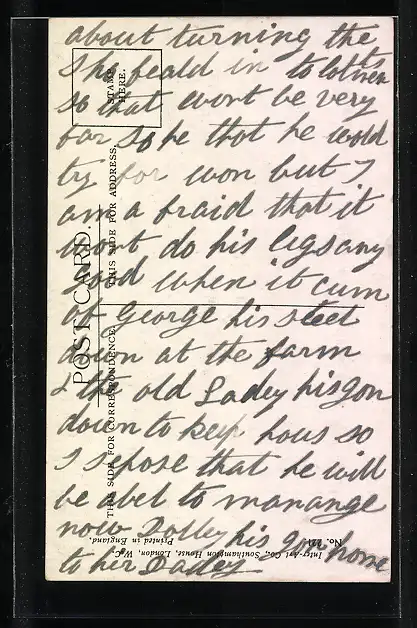 about turning the
Shefeald in to lotmen ts
so that wont be very
far so he thot he wold
try for won but I
am a fraid that it
wont do his legs any
good when it cum
of George his steel
down at the farm
& the old Ladey his gon
down to keep hous so
I sepose that he will
be abel to manange
now Dolley his gon home
to her Dadey
POST CARD.
THIS SIDE FOR CORRESPONDENCE.
THIS SIDE FOR ADDRESS.
STAMP
HERE.
No. 221
Inter-Art Co., Southampton House, London, W.C.
Printed in England.